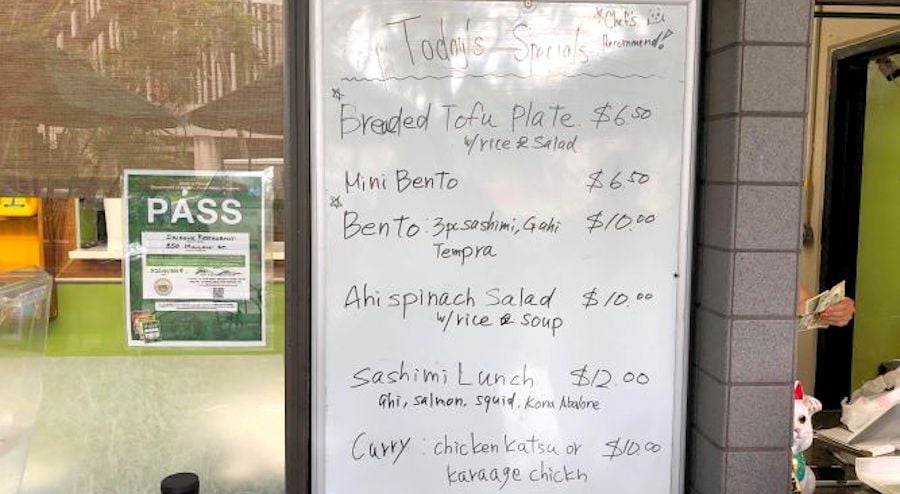 Today's Specials
*Chef's
Recommend!
☆
Breaded Tofu Plate. $6.50
w/rice & Salad
Mini Bento $6.50
☆
Bento: 3pc sashimi, Gahi $10.00
Tempra
Ahi spinach Salad $10.00
w/rice & soup
Sashimi Lunch $12.00
ahi, salmon, squid, Kona Abalone
Curry: chicken katsu or $10.00
karaage chickn
PASS
850